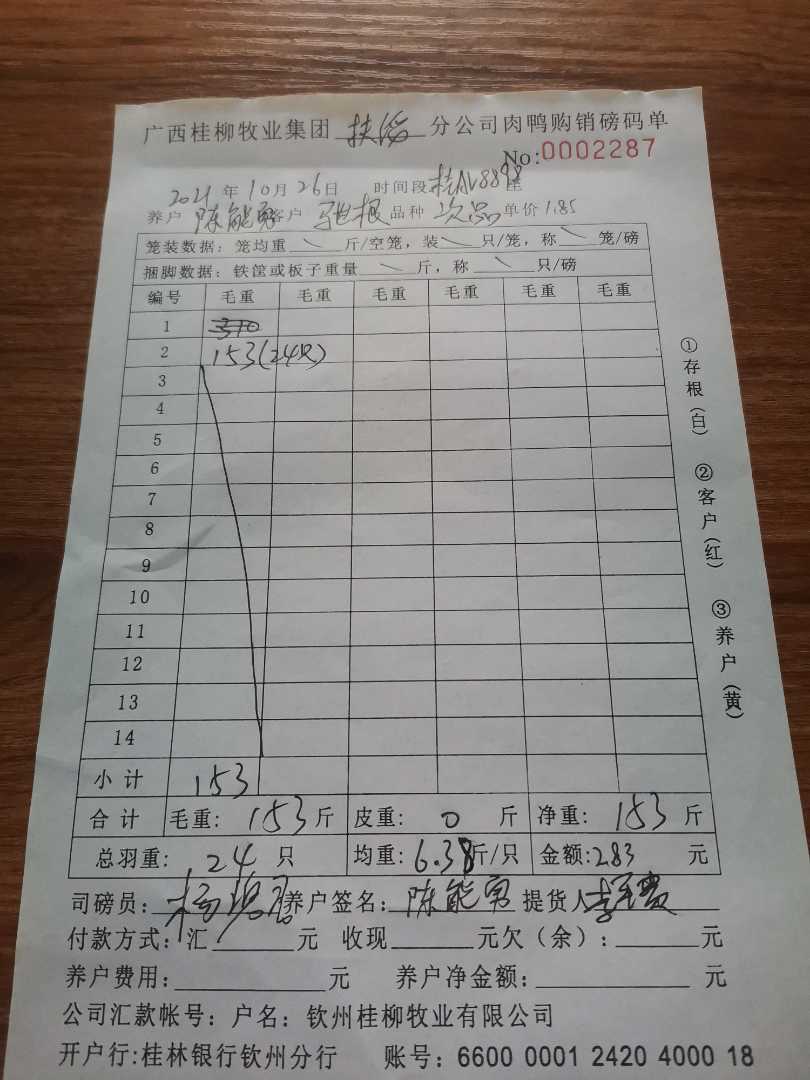 广西桂柳牧业集团 扶绥 分公司肉鸭购销磅码单
No:0002287
2021 年 10 月 26 日 时间段 桂AV8898 座
养户 陈能勇 客户 根 品种 次品 单价 1.85
笼装数据: 笼均重 \ 斤/空笼, 装 \ 只/笼, 称 \ 笼/磅
捆脚数据: 铁筐或板子重量 \ 斤, 称 \ 只/磅
编号 毛重 毛重 毛重 毛重 毛重 毛重
1 310
2 153(24只)
3
4
5
6
7
8
9
10
11
12
13
14
小计 153
合计 毛重: 153 斤 皮重: 0 斤 净重: 153 斤
总羽重: 24 只 均重: 6.38 斤/只 金额: 283 元
司磅员: 杨 养户签名: 陈能勇 提货人 李
付款方式: 汇 元 收现 元欠(余): 元
养户费用: 元 养户净金额: 元
公司汇款帐号: 户名: 钦州桂柳牧业有限公司
开户行:桂林银行钦州分行 账号: 6600 0001 2420 4000 18
①存根(白) ②客户(红) ③养户(黄)